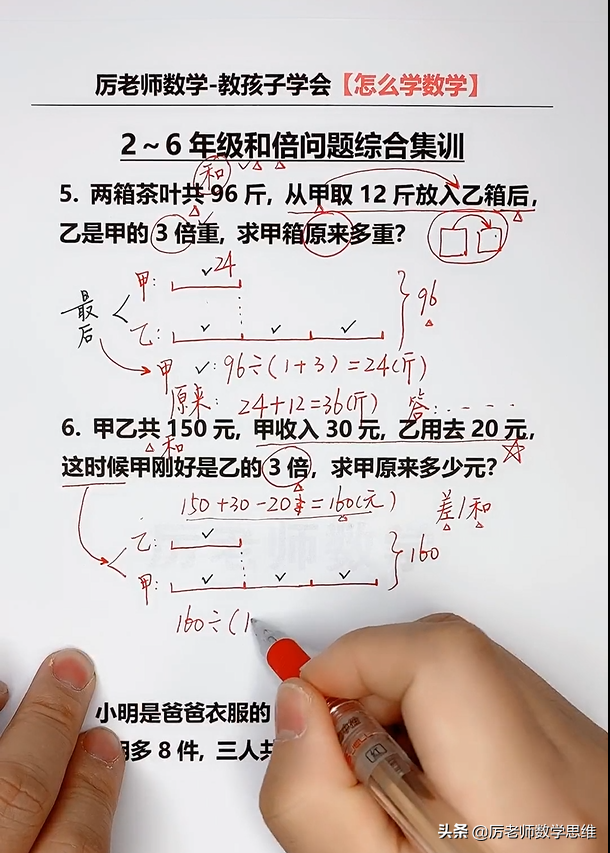 厉老师数学-教孩子学会【怎么学数学】
2～6年级和倍问题综合集训
和
5. 两箱茶叶共96斤, 从甲取12斤放入乙箱后,
乙是甲的3倍重, 求甲箱原来多重?
24
甲:
最后
乙:
96
甲: 96÷(1+3)=24(斤)
原来: 24+12=36(斤) 答:....
6. 甲乙共150元, 甲收入30元, 乙用去20元,
和
这时候甲刚好是乙的3倍, 求甲原来多少元?
150+30-20=160(元)
差/和
乙:
160
甲:
160÷(1
小明是爸爸衣服的
多8件, 三人共
头条 @厉老师数学思维